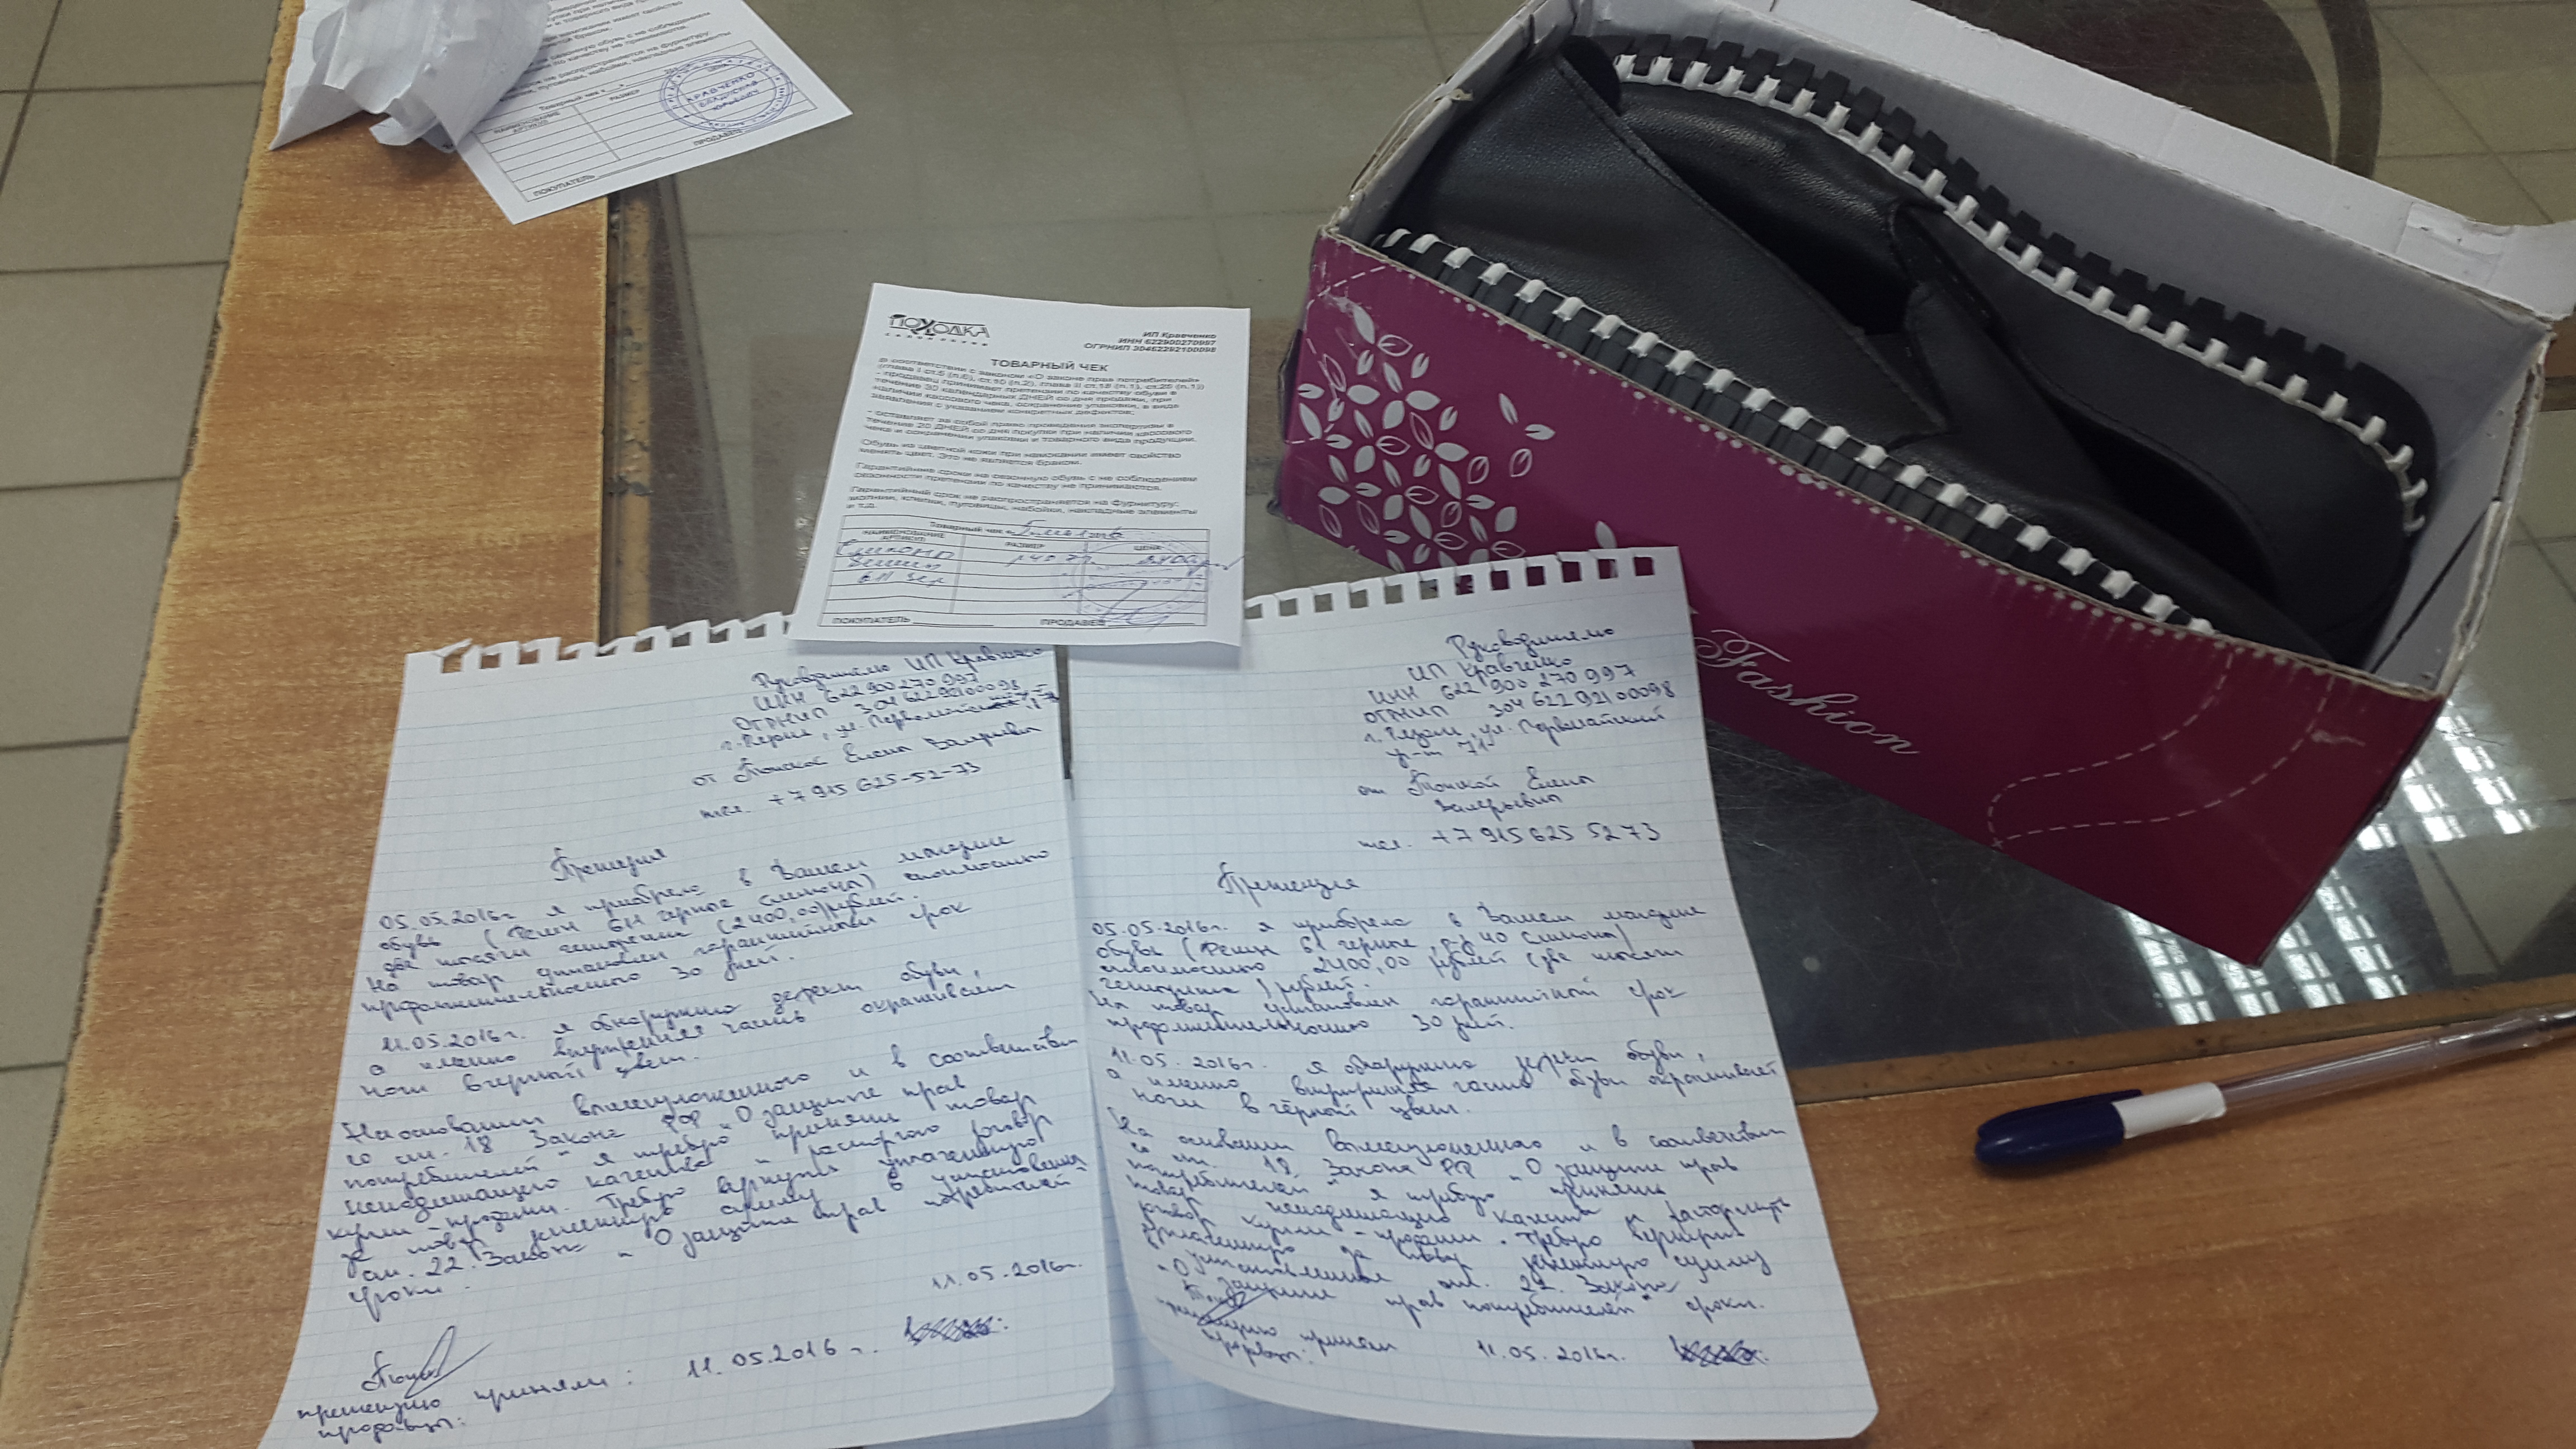 НАИМЕНОВАНИЕ
АРТИКУЛ
РАЗМЕР
КРАВЧЕНКО
ПОКУПАТЕЛЬ
ПРОДАВЕЦ
ПОХОДКА
ИП Кравченко
ИНН 622900270997
ОГРНИП 30462292100098
ТОВАРНЫЙ ЧЕК
В соответствии с законом «О законе прав потребителей»
(глава I ст.5 (п.6), ст.10 (п.2), глава II ст.18 (п.1), ст.25 (п.1))
- продавец принимает претензии по качеству обуви в
течение 30 календарных ДНЕЙ со дня продажи, при
наличии кассового чека, сохранение упаковки, в виде
заявления с указанием конкретных дефектов;
- оставляет за собой право проведения экспертизы в
течение 20 ДНЕЙ со дня покупки при наличии кассового
чека и сохранении упаковки и товарного вида продукции.
Обувь из цветной кожи при намокании имеет свойство
менять цвет. Это не является браком.
Гарантийные сроки на сезонную обувь с не соблюдением
сезонности претензии по качеству не принимаются.
Гарантийный срок не распространяется на фурнитуру:
молнии, клепки, пуговицы, набойки, накладные элементы
и т.д.
Товарный чек
НАИМЕНОВАНИЕ АРТИКУЛ РАЗМЕР ЦЕНА
ПОКУПАТЕЛЬ ПРОДАВЕЦ
Fashion
Руководителю ИП Кравченко
ИНН 622900270997
ОГРНИП 30462292100098
г. Рязань, ул. Первомайский
от Тонкой Елены Валерьевны
тел. +7 915 625-52-73
Претензия
05.05.2016г. я приобрела в Вашем магазине
обувь (Фелин 611 черные слипоны) стоимостью
две тысячи четыреста (2400,00) рублей.
На товар установлен гарантийный срок
продолжительностью 30 дней.
11.05.2016г. я обнаружила дефект обуви,
а именно внутренняя часть окрашивает
ноги в черный цвет.
На основании вышеизложенного и в соответствии
со ст. 18 Закона РФ "О защите прав
потребителей" я требую принять товар
ненадлежащего качества и расторгнуть договор
купли-продажи. Требую вернуть уплаченную
за товар денежную сумму в установленные
ст. 22. Закона "О защите прав потребителей"
сроки.
11.05.2016г.
претензию приняли: 11.05.2016г.
продавцы:
Руководителю
ИП Кравченко
ИНН 622 900 270997
ОГРНИП 304 622 921 00098
г. Рязань, ул. Первомайский
пр-т 71
от Тонкой Елены
Валерьевны
тел. +7 915 625 52 73
Претензия
05.05.2016г. я приобрела в Вашем магазине
обувь (Фелин 61 черные, р-р 40 слипоны)
стоимостью 2400,00 рублей (две тысячи
четыреста) рублей.
На товар установлен гарантийный срок
продолжительностью 30 дней.
11.05.2016г. я обнаружила дефект обуви,
а именно внутренняя часть обуви окрашивает
ноги в чёрный цвет.
На основании вышеизложенного и в соответствии
со ст. 18 Закона РФ "О защите прав
потребителей" я требую принять
товар ненадлежащего качества и расторгнуть
договор купли-продажи. Требую вернуть
уплаченную за товар денежную сумму
в установленные ст. 22. Закона
"О защите прав потребителей" сроки.
претензию приняли 11.05.2016г.
продавцы: